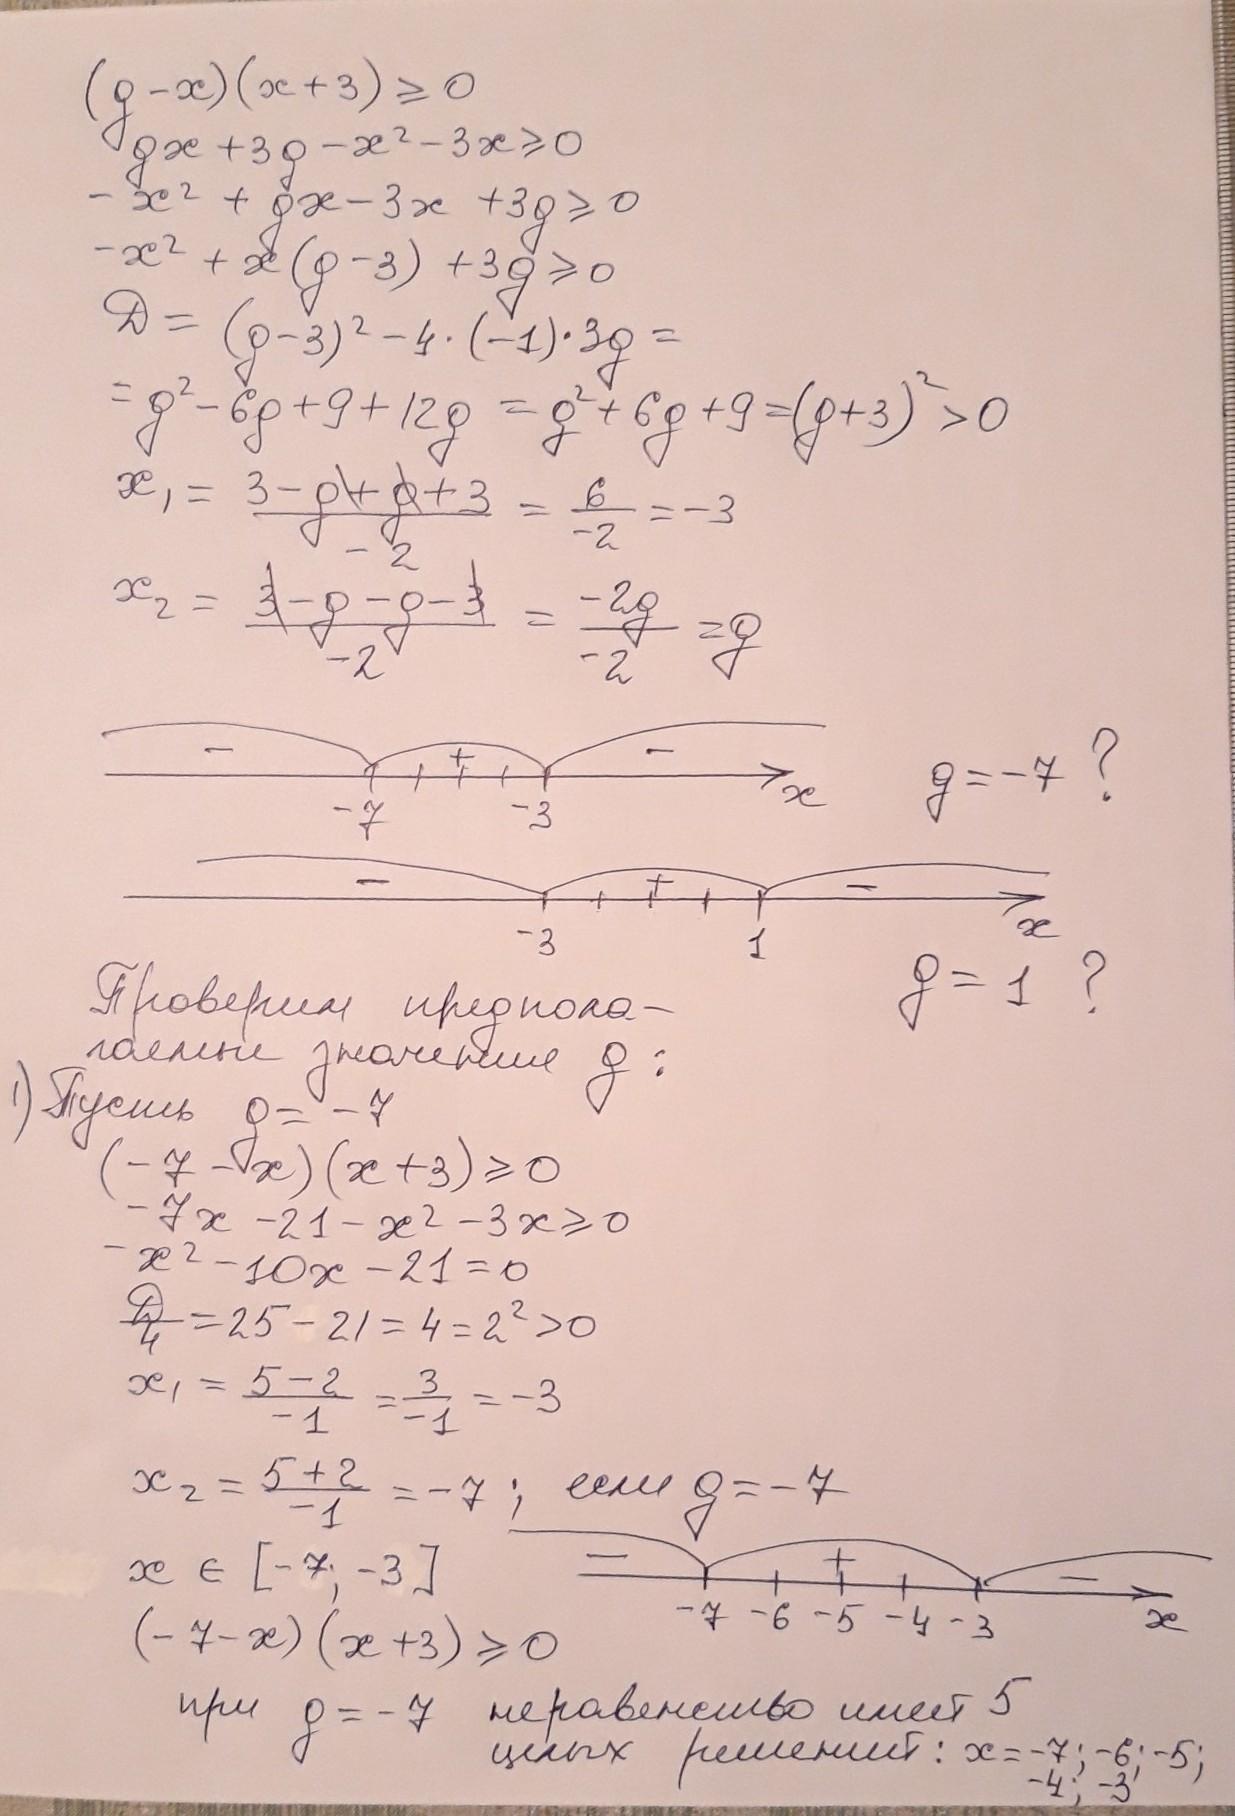 (g-x)(x+3)≥0
gx+3g-x²-3x≥0
-x²+gx-3x+3g≥0
-x²+x(g-3)+3g≥0
D=(g-3)²-4·(-1)·3g=
=g²-6g+9+12g=g²+6g+9=(g+3)²>0
x₁=(3-g+g+3)/(-2)=6/(-2)=-3
x₂=(3-g-g-3)/(-2)=(-2g)/(-2)=g
- + -
-7 -3 x g=-7 ?
- + -
-3 1 x
g=1 ?
Проверим предпола-
гаемые значения g:
1) Пусть g=-7
(-7-x)(x+3)≥0
-7x-21-x²-3x≥0
-x²-10x-21=0
D/4=25-21=4=2²>0
x₁=(5-2)/(-1)=3/(-1)=-3
x₂=(5+2)/(-1)=-7; если g=-7
x∈[-7;-3] - + -
-7 -6 -5 -4 -3 x
(-7-x)(x+3)≥0
при g=-7 неравенство имеет 5
целых решений: x=-7;-6;-5;
-4;-3